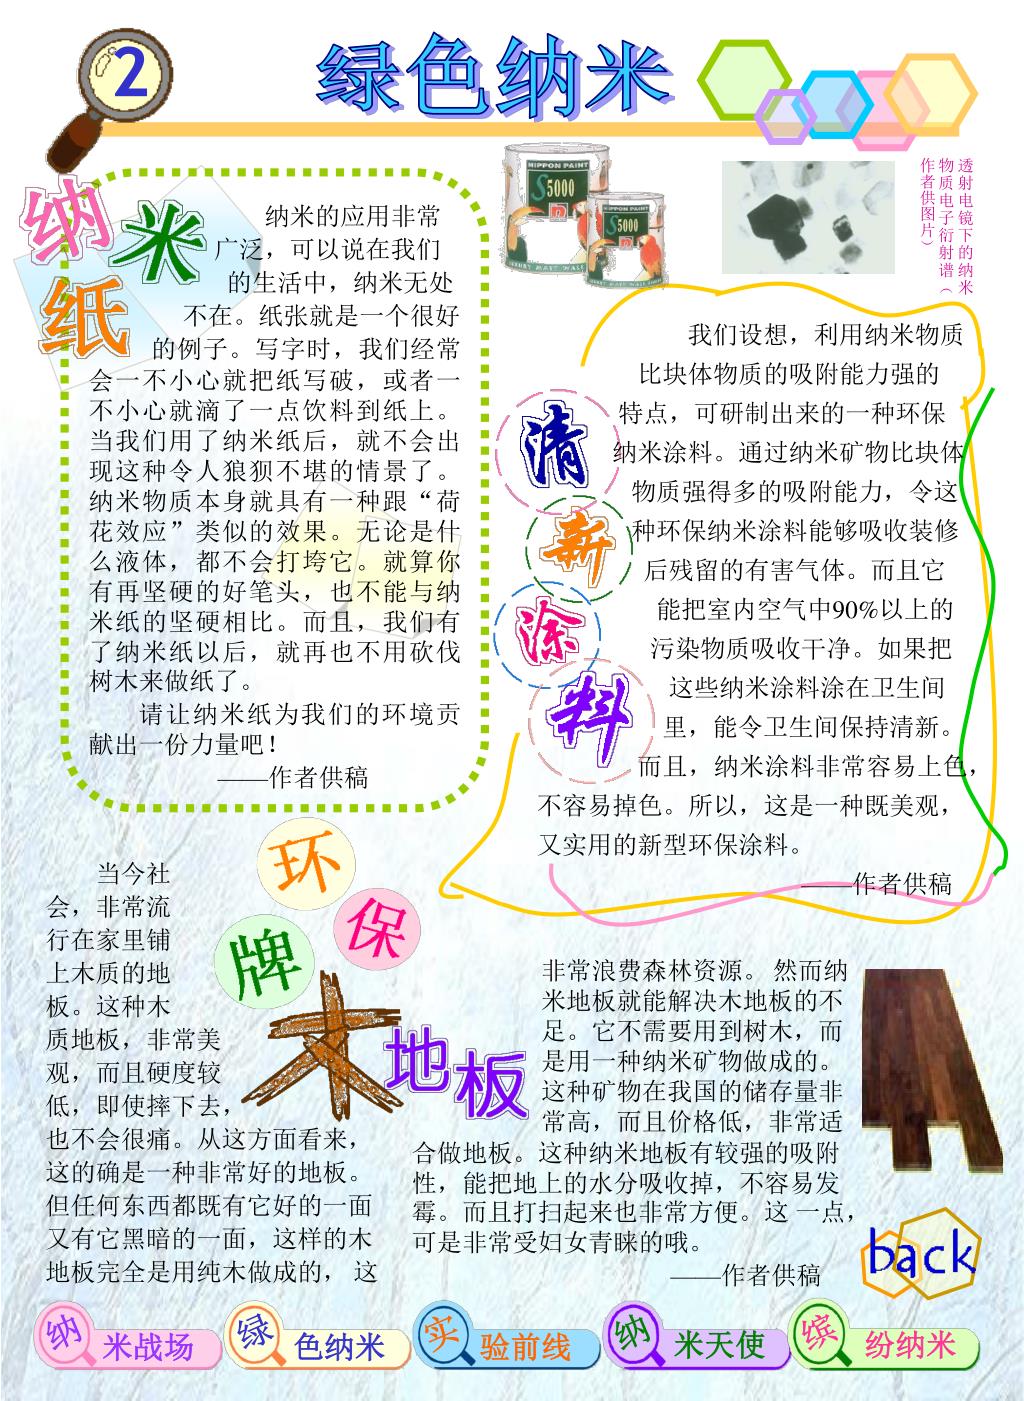 2
绿色纳米
NIPPON PAINT
S5000
S5000
透射电镜下的纳米
物质电子衍射谱（
作者供图片）
纳米
纸
纳米的应用非常
广泛，可以说在我们
的生活中，纳米无处
不在。纸张就是一个很好
的例子。写字时，我们经常
会一不小心就把纸写破，或者一
不小心就滴了一点饮料到纸上。
当我们用了纳米纸后，就不会出
现这种令人狼狈不堪的情景了。
纳米物质本身就具有一种跟“荷
花效应”类似的效果。无论是什
么液体，都不会打垮它。就算你
有再坚硬的好笔头，也不能与纳
米纸的坚硬相比。而且，我们有
了纳米纸以后，就再也不用砍伐
树木来做纸了。
请让纳米纸为我们的环境贡
献出一份力量吧！
——作者供稿
清
新
涂
料
我们设想，利用纳米物质
比块体物质的吸附能力强的
特点，可研制出来的一种环保
纳米涂料。通过纳米矿物比块体
物质强得多的吸附能力，令这
种环保纳米涂料能够吸收装修
后残留的有害气体。而且它
能把室内空气中90%以上的
污染物质吸收干净。如果把
这些纳米涂料涂在卫生间
里，能令卫生间保持清新。
而且，纳米涂料非常容易上色，
不容易掉色。所以，这是一种既美观，
又实用的新型环保涂料。
——作者供稿
环
保
牌
木
地板
当今社
会，非常流
行在家里铺
上木质的地
板。这种木
质地板，非常美
观，而且硬度较
低，即使摔下去，
也不会很痛。从这方面看来，
这的确是一种非常好的地板。
但任何东西都既有它好的一面
又有它黑暗的一面，这样的木
地板完全是用纯木做成的， 这
非常浪费森林资源。 然而纳
米地板就能解决木地板的不
足。它不需要用到树木，而
是用一种纳米矿物做成的。
这种矿物在我国的储存量非
常高，而且价格低，非常适
合做地板。这种纳米地板有较强的吸附
性，能把地上的水分吸收掉，不容易发
霉。而且打扫起来也非常方便。这 一点，
可是非常受妇女青睐的哦。
——作者供稿
back
纳米战场
绿色纳米
实验前线
纳米天使
缤纷纳米